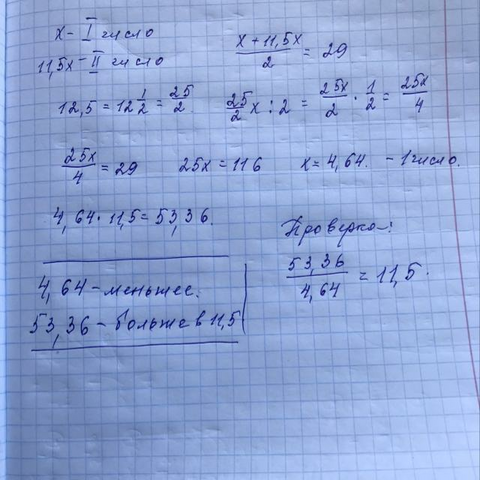 x - I число
11,5x - II число
(x + 11,5x)/2 = 29
12,5 = 12 1/2 = 25/2
25/2 x : 2 = 25x/2 · 1/2 = 25x/4
25x/4 = 29 25x = 116 x = 4,64. - 1 число.
4,64 · 11,5 = 53,36.
Проверка:
53,36/4,64 = 11,5.
4,64 - меньшее.
53,36 - больше в 11,5